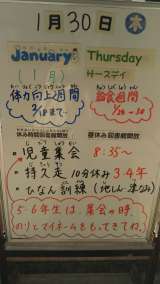 1月30日 木
January Thursday
(1月) サースデイ
体力向上週間 給食週間
2/18まで
休み時間図書館開放 昼休み図書館開放
・児童集会 8:35~
・持久走 10分休み 34年
・ひなん訓練 (地しん・津なみ)
5・6年生は、集会の時、
のりとマイネームをもってきてね。